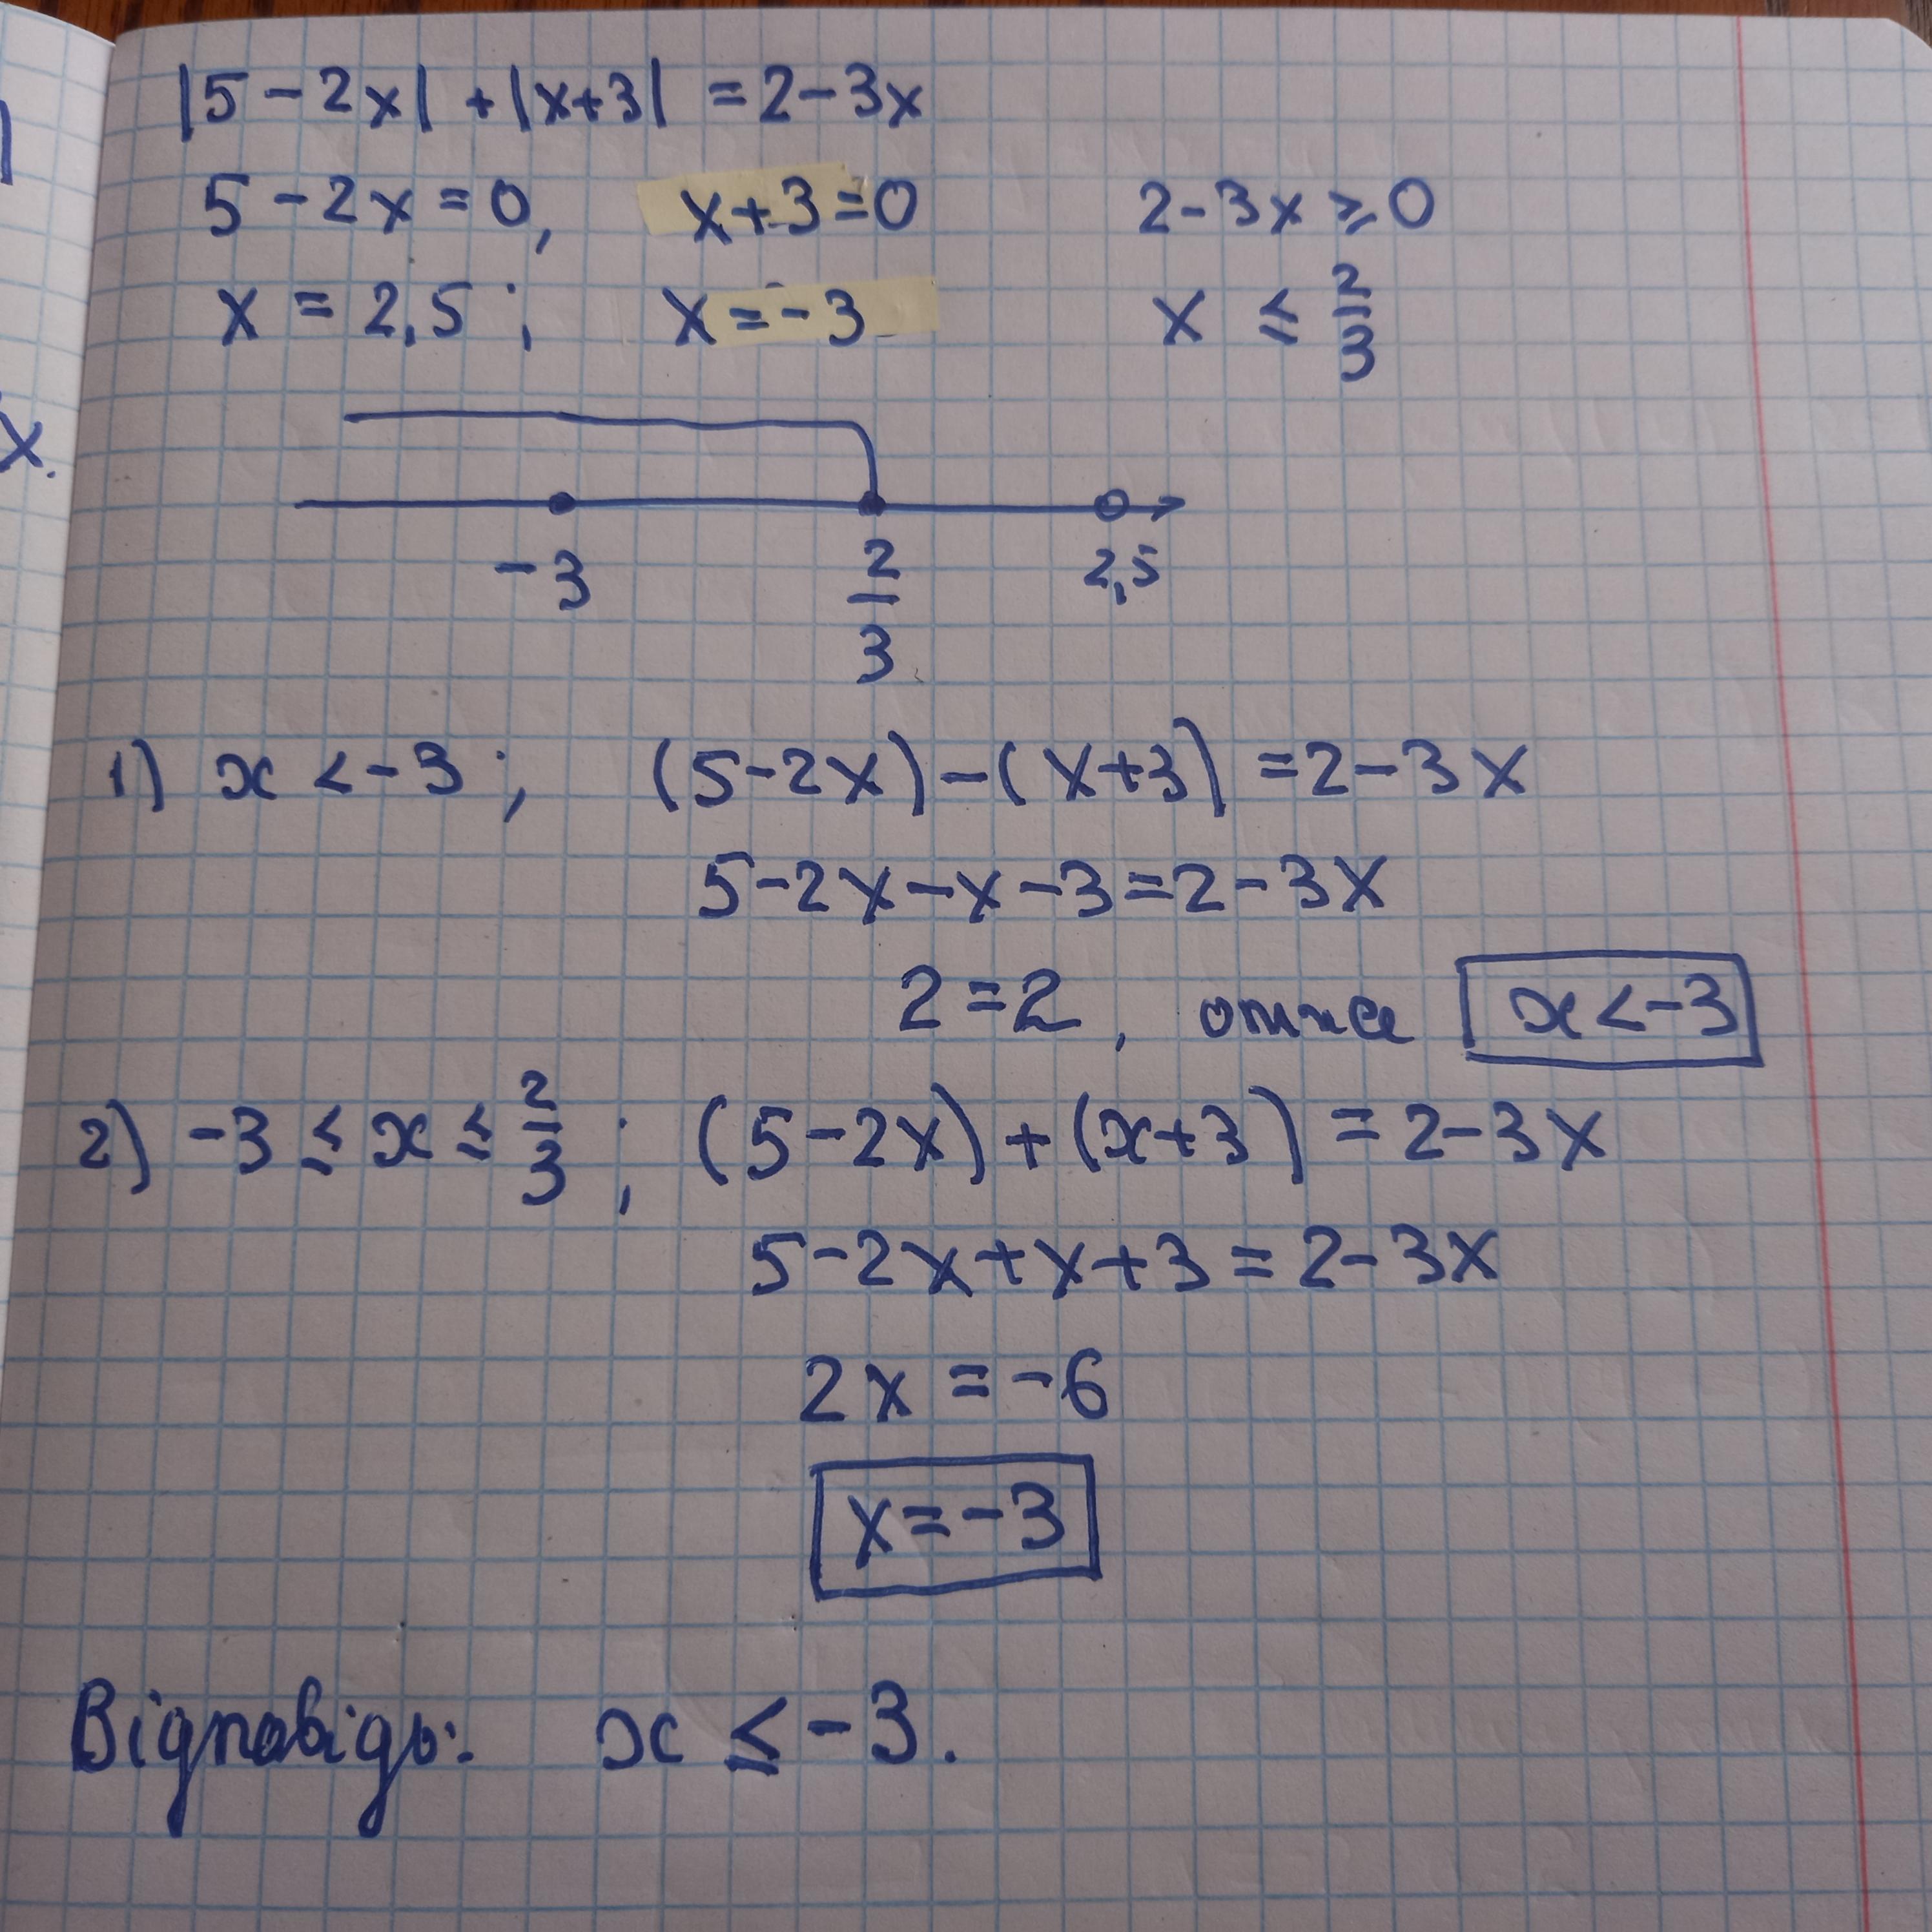 |5-2x| + |x+3| = 2-3x
5-2x=0, x+3=0 2-3x ≥ 0
x = 2,5; x=-3 x ≤ 2/3
-3 2/3 2,5
1) x < -3; (5-2x)-(x+3) = 2-3x
5-2x-x-3=2-3x
2=2, отже x<-3
2) -3 ≤ x ≤ 2/3; (5-2x)+(x+3) = 2-3x
5-2x+x+3=2-3x
2x=-6
x=-3
Відповідь: x ≤ -3.